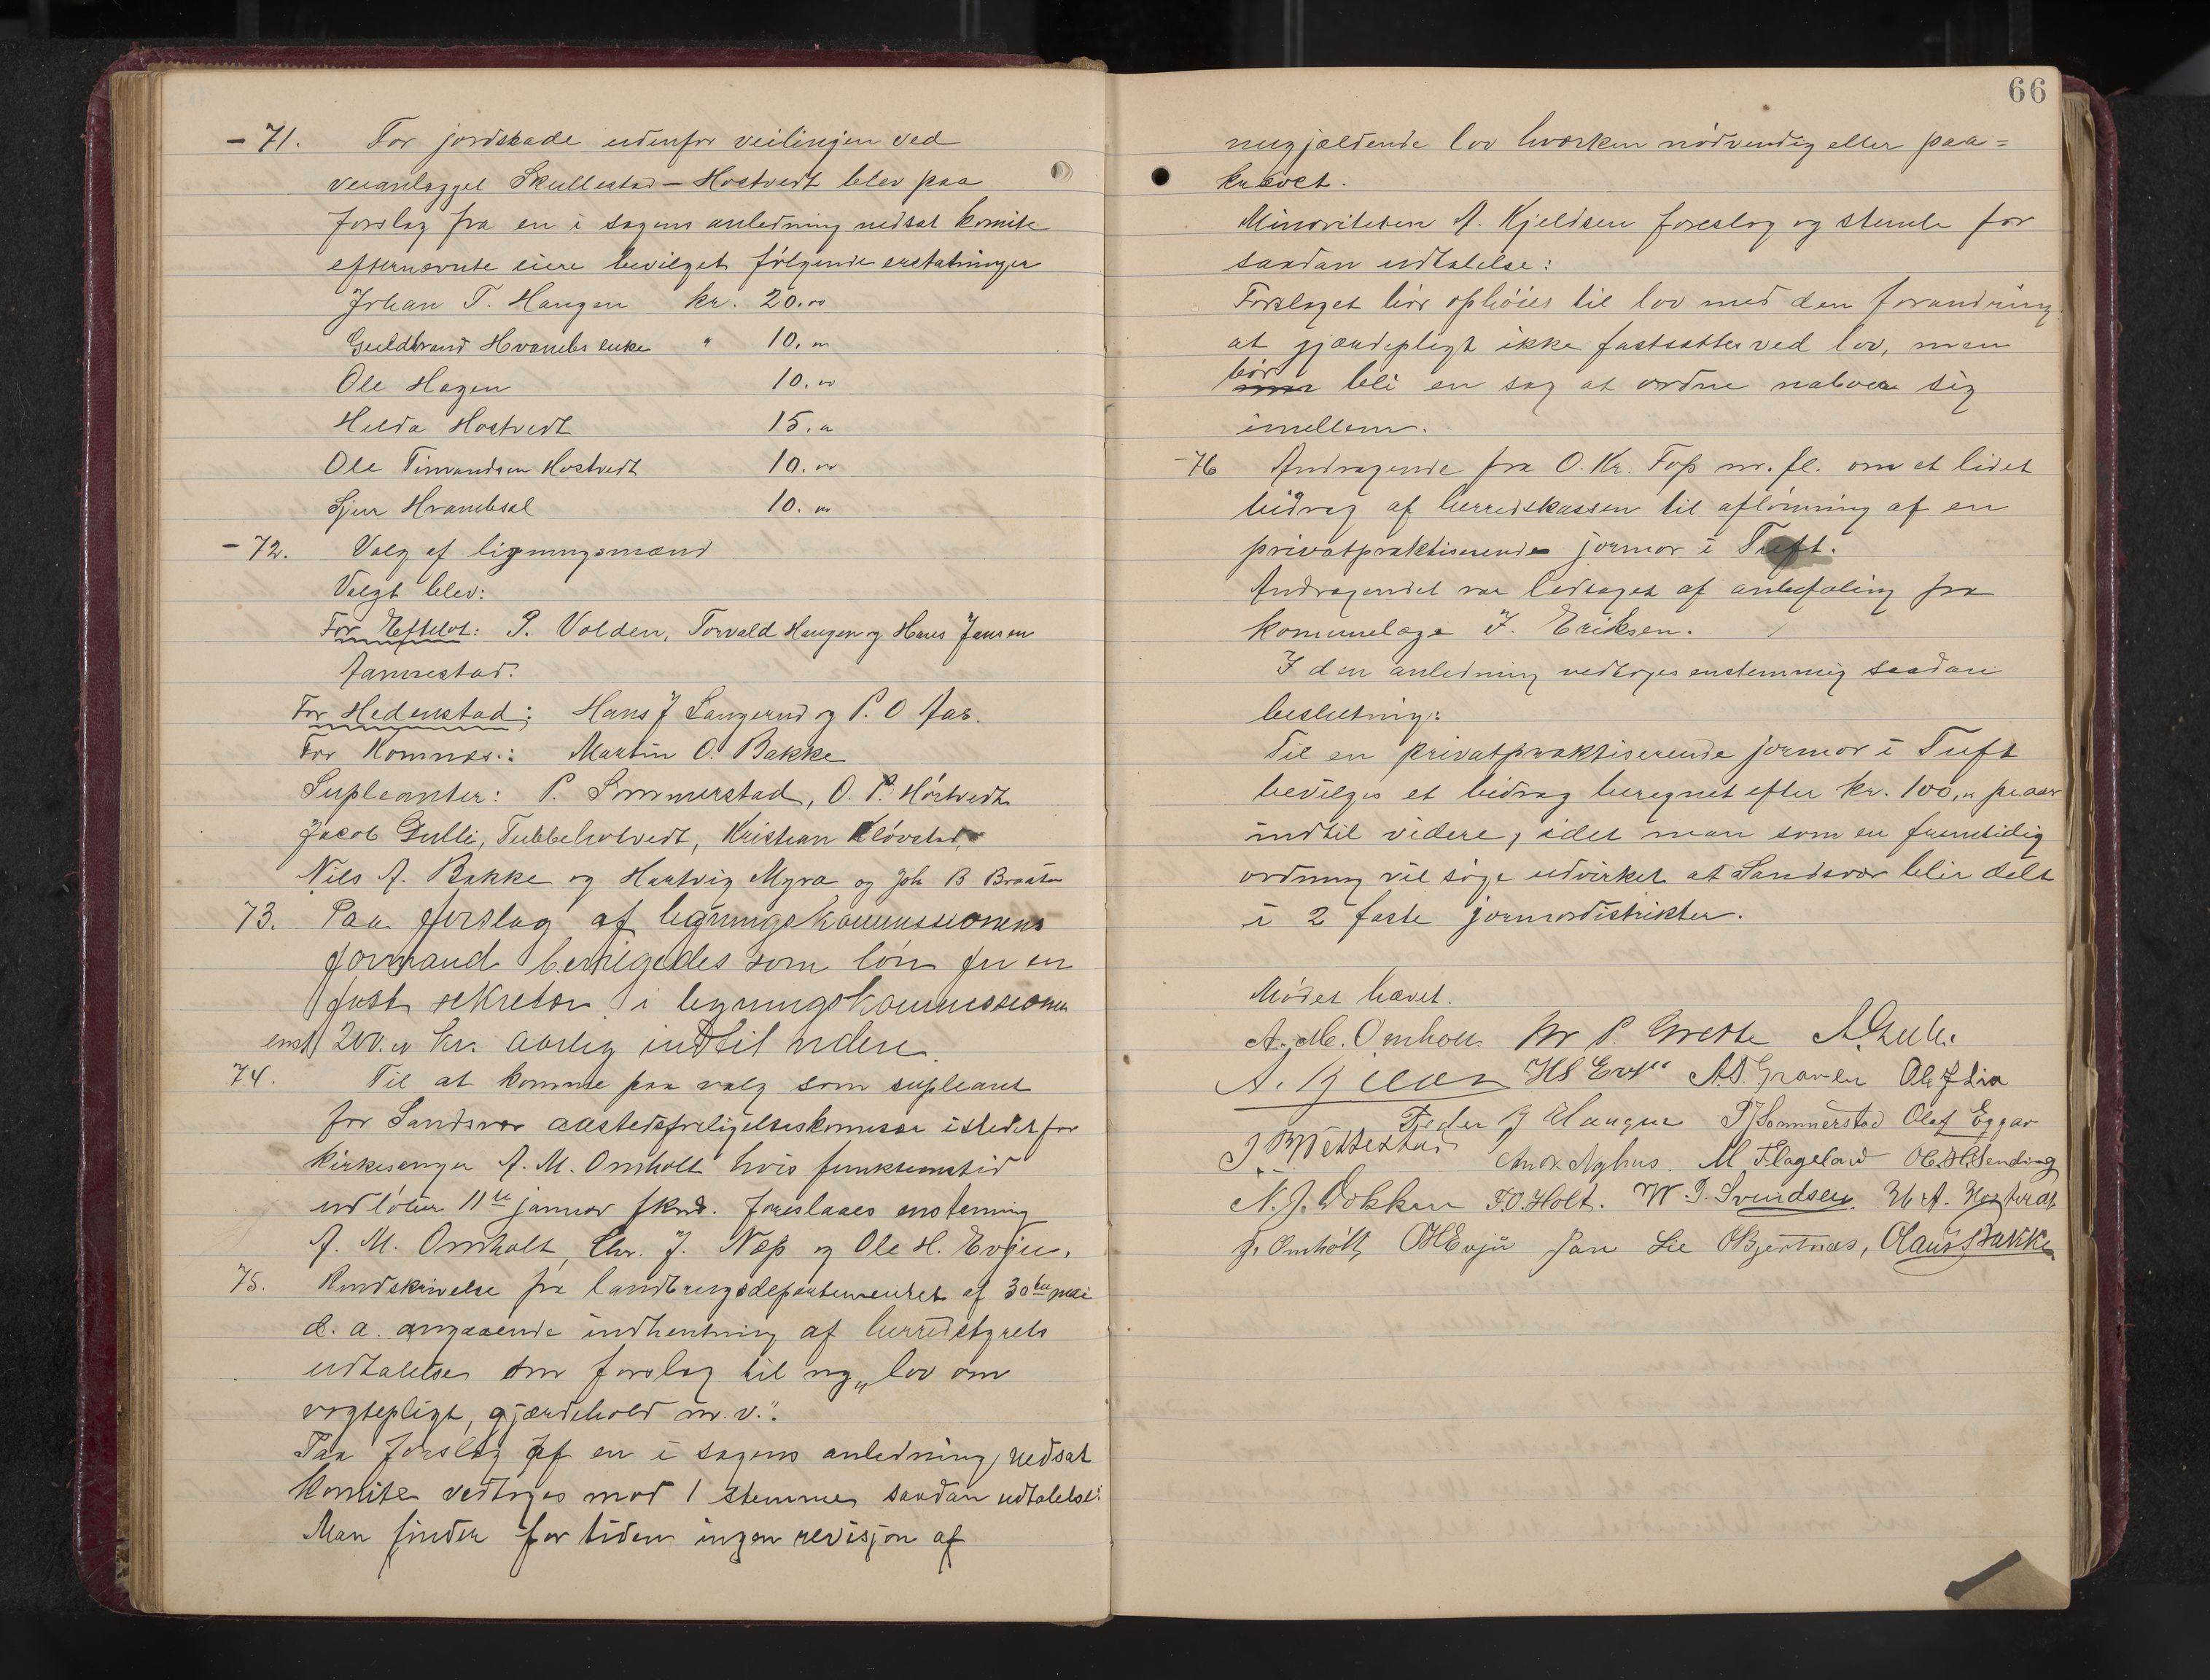 - 71. For jordskade udenfor veilinjen ved
veianlægget Skullestad - Hostvedt blev paa
forslag fra en i sagens anledning nedsat komite
efternævnte eiere bevilget følgende erstatninger
Johan T. Haugen kr. 20.00
Guldbrand Hvambs enke " 10.00
Ole Hagen 10.00
Helda Hostvedt 15.00
Ole Timandsen Hostvedt 10.00
Gjen Hvambsal 10.00
- 72. Valg af ligningsmænd
Valgt blev:
For Efteløt: P. Volden, Torvald Haugen og Hans Jansen
Aannestad.
For Hedenstad: Hans J Langerud og P. O Aas.
For Komnæs.: Martin O. Bakke
Supleanter: P. Sommerstad, O. P. Hóstvedt
Jacob Gulli, Tubbeholvedt, Kristian Kløvstad,
Nils A. Bakke og Hartvig Myra og Joh B Braaten
73. Paa forslag af ligningskommissionens
formand bevilgedes som løn for en
fast sekretær i ligningskommissionen
enst 200.00 kr. aarlig indtil videre.
74. Til at komme paa valg som supleant
for Sandsvær aastedsforligelseskomisse istedet for
kirkesanger A. M. Omholt hvis funksionstid
udløber 11te januar fkmd. foreslaaes enstemig
A. M. Omholt, Chr. J. Næss og Ole H. Evju.
75. Rundskrivelse fra landbrugsdepartementet af 30te mai
d. a. angaaende indhentning af herredstyrets
udtalelse om forslag til ny „lov om
vogtepligt, gjærdehold m. v.".
Paa forslag af en i sagens anledning nedsat
komite vedtoges mod 1 stemme saadan udtalelse:
Man finder for tiden ingen revisjon af
66
nugjældende lov hværken nødvendig eller paa=
krævet.
Minoriteten A. Kjeldsen foreslog og stemte for
saadan udtalelse:
Forslaget bør ophøies til lov med den forandring
at gjærdepligt ikke fastsættes ved lov, men
bør bli en sag at ordne naboer sig
imellem.
- 76 Andragende fra O. Kr. Foss m. fl. om et lidet
bidrag af herredskassen til aflønning af en
privatpraktiserende jormor i Tuft.
Andragendet var ledsaget af anbefaling fra
komunelæge J. Eriksen.
I den anledning vedtoges enstemmig saadan
beslutning:
Til en privatpraktiserende jormor i Tuft
bevilges et bidrag beregnet efter kr. 100,00 pr. aar
indtil videre, idet man som en fremtidig
ordning vil søge udvirket at Sandsvær blir delt
i 2 faste jormordistrikter.
Mødet hævet.
A. M. Omholt. Kr P. Grette A. Gulli
HS Evju A. S. Graver Ole J Lia
Peder J Haugen P J Sommerstad Olaf Eggar
J Wettestad And. Aghus. M Flageland Ole H. Sending
N. J. Dokken F. O. Holt. W. P. Svendsen. H. A. Hostvedt
J. Omholt OHEvju Jan Lie O Bjertnæs, Claus Bakke